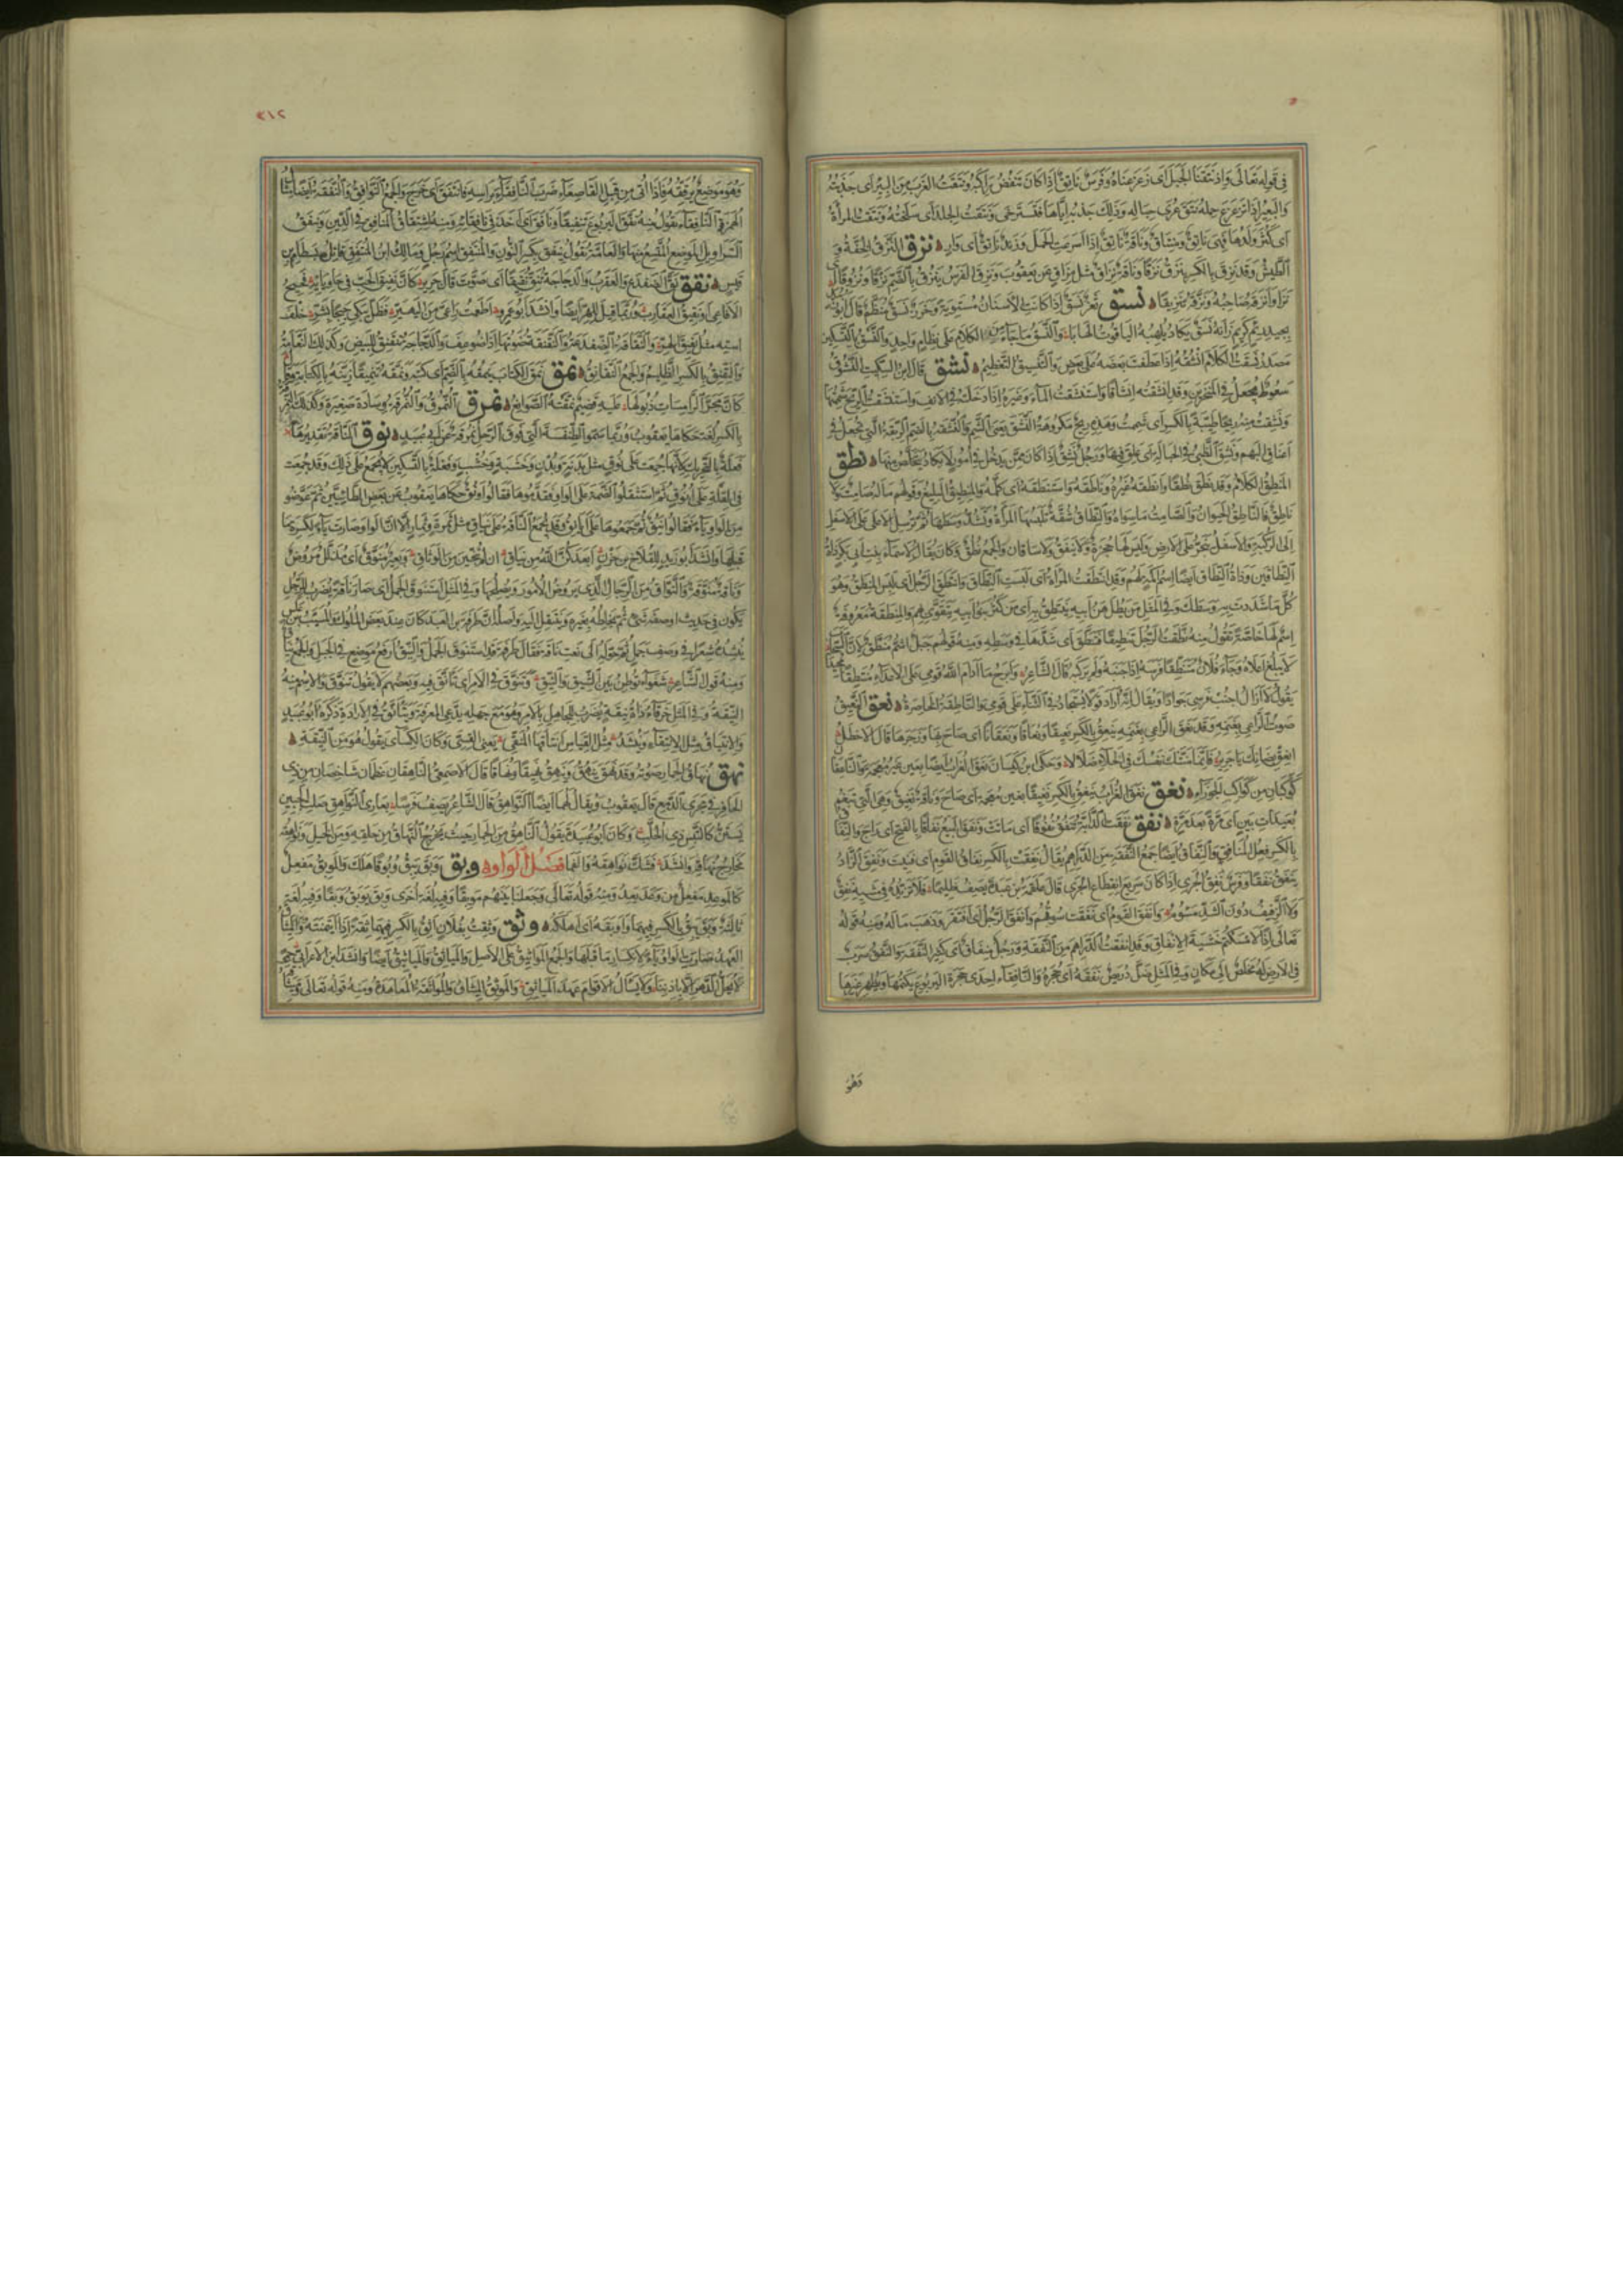 في قوله تعالى واذ نتقنا الجبل اى زعزعناه وفرس ناتق اذا كان ينفض راكبه ونتقت الغرب من البئر اى جذبته
والبعير اذا تزعزع حمله نتق عرى حباله وذلك جذبه اياها فتسترخى ونتقت الجلد اى سلخته ونتقت المرأة
اى كثر ولدها فهى ناتق ومنتاق وناقة ناتق اذا اسرعت الحمل وزند ناتق اى وار ه نزق النزق الخفة و
الطيش وقد نزق بالكسر ينزق نزقا وناقة نزاق مثل مزاق عن يعقوب ونزق الفرس ينزق بالضم نزقا ونزوقا اى
نزا وانزقه صاحبه ونزقه تنزيقا ه نسق ثغر نسق اذا كانت الاسنان مستوية وخرز نسق منظم قال ابو زبيد
بجيد ريم كريم زانه نسق يكاد يلهبه الياقوت الهابا والنسق ما جاء من الكلام على نظام واحد والنسق بالتسكين
مصدر نسقت الكلام انسقه اذا عطفت بعضه على بعض والتنسيق التنظيم ه نشق قال ابن السكيت النشوق
سعوط يجعل في المنخرين وقد انشقته انشاقا واستنشقت الماء وغيره اذا ادخلته في الانف واستنشقت الريح شممتها
ونشقت منه ريحا طيبة بالكسر اى شممت وهذه ريح مكروهة النشق يعنى الشم والنشقة بالضم الربقة التى تجعل في
اعناق البهم ونشق الظبى في الحبالة اى علق فيها ورجل نشق اذا كان ممن يدخل في امور لا يكاد يتخلص منها ه نطق
المنطق الكلام وقد نطق نطقا وانطقه غيره وناطقه واستنطقه اى كلمه والمنطيق البليغ وقولهم ما له صامت ولا
ناطق فالناطق الحيوان والصامت ما سواه والنطاق شقة تلبسها المرأة وتشد وسطها ثم ترسل الاعلى على الاسفل
الى الركبة والاسفل ينجر على الارض وليس لها حجزة ولا نيفق ولا ساقان والجمع نطق وكان يقال لاسماء بنت ابى بكر ذات
النطاقين وذات النطاق ايضا اسم اكمة لهم وقد انتطقت المرأة اى لبست النطاق وانتطق الرجل اى لبس المنطق وهو
كل ما شددت به وسطك وفي المثل من يطل هن ابيه ينتطق به اى من كثر بنو ابيه يتقوى بهم والمنطقة معروفة
اسم لها خاصة تقول منه نطقت الرجل تنطيقا فتنطق اى شدها في وسطه ومنه قولهم جبل اشم منطق لان السحاب
لا يبلغ اعلاه وجاء فلان منتطقا فرسه اذا جنبه ولم يركبه قال الشاعر وابرح ما ادام الله قومى على الاعداء منتطقا مجيدا
يقول لا ازال اجنب فرسى جوادا ويقال انه اراد قولا يستجاد في الثناء على قومى والناطقة الخاصرة ه نعق النعيق
صوت الراعى بغنمه وقد نعق الراعى بغنمه ينعق بالكسر نعيقا ونعاقا ونعقانا اى صاح بها وزجرها قال الاخطل
انعق بضأنك يا جرير فانما منتك نفسك في الخلاء ضلالا وحكى ابن كيسان نعق الغراب ايضا بعين غير معجمة والناعقان
كوكبان من كواكب الجوزاء ه نغق نغق الغراب ينغق بالكسر نغيقا بغين معجمة اى صاح وناقة نغيق وهى التى تبغم
بعيدات بين اى مرة بعد مرة ه نفق نفقت الدابة تنفق نفوقا اى ماتت ونفق البيع نفاقا بالفتح اى راج والنفاق
بالكسر فعل المنافق والنفاق ايضا جمع النفقة من الدراهم يقال نفقت بالكسر نفاق القوم اى فنيت ونفق الزاد
ينفق نفقا وفرس نفق الجرى اذا كان سريع انقطاع الجرى قال علقمة بن عبدة يصف ظليما فلا تزيده في مشيه نفق
ولا الزفيف دوين الشد مسؤوم وانفق القوم اى نفقت سوقهم وانفق الرجل اى افتقر وذهب ماله ومنه قوله
تعالى اذا لامسكتم خشية الانفاق وقد انفقت الدراهم من النفقة ورجل منفاق اى كثير النفقة والنفق سرب
في الارض له مخلص الى مكان وفي المثل ضل دريص نفقه اى جحره والنافقاء احدى جحرة اليربوع يكتمها ويظهر غيرها
وهو
٢١٢
وهو موضع يرققه فاذا اتى من قبل القاصعاء ضرب النافقاء براسه فانتفق اى خرج والجمع النوافق والنفقة ايضا مثال
الهمزة النافقاء تقول منه نفق اليربوع تنفيقا ونافق اى اخذ في نافقائه ومنه اشتقاق المنافق في الدين ونيفق
السراويل الموضع المتسع منها والعامة تقول نيفق بكسر النون والمنتفق اسم رجل ومالك ابن المنتفق قاتل بسطام بن
قيس ه نقق نق الضفدع والعقرب والدجاجة تنق نقيقا اى صوت قال جرير كان نقيق الحب في حاويائه فحيح
الافاعى او نقيق العقارب وربما قيل للهر ايضا وانشد ابو عمرو اطعمت راعى من اليهير فظل يبكى حبجا بشر خلف
استه مثل نقيق الهر والنقاقة الضفدعة والنقنقة صوتها اذا ضوعف والدجاجة تنقنق للبيض وكذلك النعامة
والنقنق بالكسر الظليم والجمع النقانق ه نمق نمق الكتاب ينمقه بالضم اى كتبه ونمقه تنميقا زينه بالكتابة قال
كان مجر الرامسات ذيولها عليه قضيم نمقته الصوانع ه نمرق النمرق والنمرقة وسادة صغيرة وكذلك النمرقة
بالكسر لغة حكاها يعقوب وربما سموا الطنفسة التى فوق الرحل نمرقة عن ابى عبيد ه نوق الناقة تقديرها
فعلة بالتحريك لانها جمعت على نوق مثل بدنة وبدن وخشبة وخشب وفعلة بالتسكين لا تجمع على ذلك وقد جمعت
في القلة على انوق ثم استثقلوا الضمة على الواو فقدموها فقالوا اونق حكاها يعقوب عن بعض الطائيين ثم عوضوا
من الواو ياء فقالوا اينق ثم جمعوها على ايانق وقد تجمع الناقة على نياق مثل ثمرة وثمار الا ان الواو صارت ياء لكسرة ما
قبلها وانشد ابو زيد للقلاخ بن حزن ابعدكن الله من نياق ان لم تنجين من الوثاق وبعير منوق اى مذلل مروض
وناقة منوقة والنواق من الرجال الذى يروض الامور ويصلحها وفي المثل استنوق الجمل اى صار ناقة يضرب للرجل
يكون في حديث او صفة شىء ثم يخلطه بغيره وينتقل اليه واصله ان طرفة بن العبد كان عند بعض الملوك والمسيب بن علس
ينشده شعرا في وصف جمل ثم حوله الى نعت ناقة فقال طرفة قد استنوق الجمل والنيق ارفع موضع في الجبل والجمع نياق
ومنه قول الشاعر شغواء توطن بين الشيق والنيق وتنوق في الامر اى تانق فيه وبعضهم لا يقول تنوق والاسم منه
النيقة وفي المثل خرقاء ذات نيقة يضرب للجاهل بالامر وهو مع جهله يدعى المعرفة ويتأنق في الارادة ذكره ابو عبيد
والانتياق مثل الانتقاء وينشد مثل القياس انتاقها المنقى يعنى القسى وكان الكسائى يقول هو من النيقة ه
نهق نهاق الحمار صوته وقد نهق ينهق وينهق نهيقا ونهاقا قال الاصمعى الناهقان عظمان شاخصان من ذى
الحافر في مجرى الدمع قال يعقوب ويقال لهما ايضا النواهق قال الشاعر يصف فرسا بعارى النواهق صلت الجبين
يستن كالتيس ذى الحلب وكان ابو عبيدة يقول الناهق من الحمار حيث يخرج النهاق من حلقه ومن الخيل نواهقه
مخارج نهاقه وانشد فشك نواهقه والفما فصل الواو ه وبق وبق يبق وبوقا هلك والموبق مفعل
كالموعد مفعل من وعد يعد ومنه قوله تعالى وجعلنا بينهم موبقا وفيه لغة اخرى وبق يوبق وبقا وفيه لغة
ثالثة وبق يبق بالكسر فيهما واوبقه اى اهلكه ه وثق وثقت بفلان اثق بالكسر فيهما ثقة اذا ائتمنته والميثاق
العهد صارت الواو ياء لانكسار ما قبلها والجمع المواثيق على الاصل والمياثق والمياثيق ايضا وانشد ابن الاعرابى حمى
لا يحل الدهر الا باذننا ولا نسأل الاقوام عهد المياثق والموثق الميثاق والمواثقة المعاهدة ومنه قوله تعالى وميثاقه